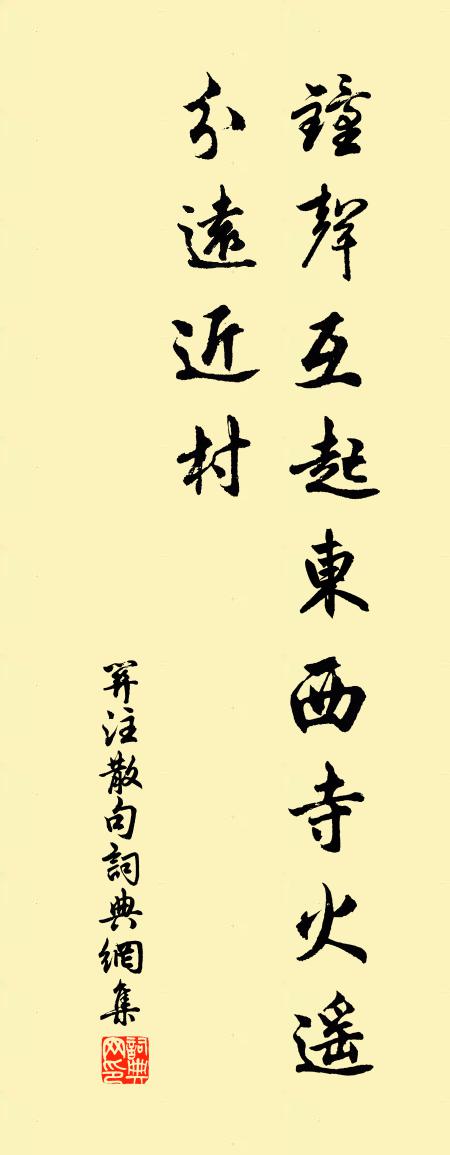 鐘聲互起東西寺火遥
分遠近村
笄注散句詞典網集
詞典
网印